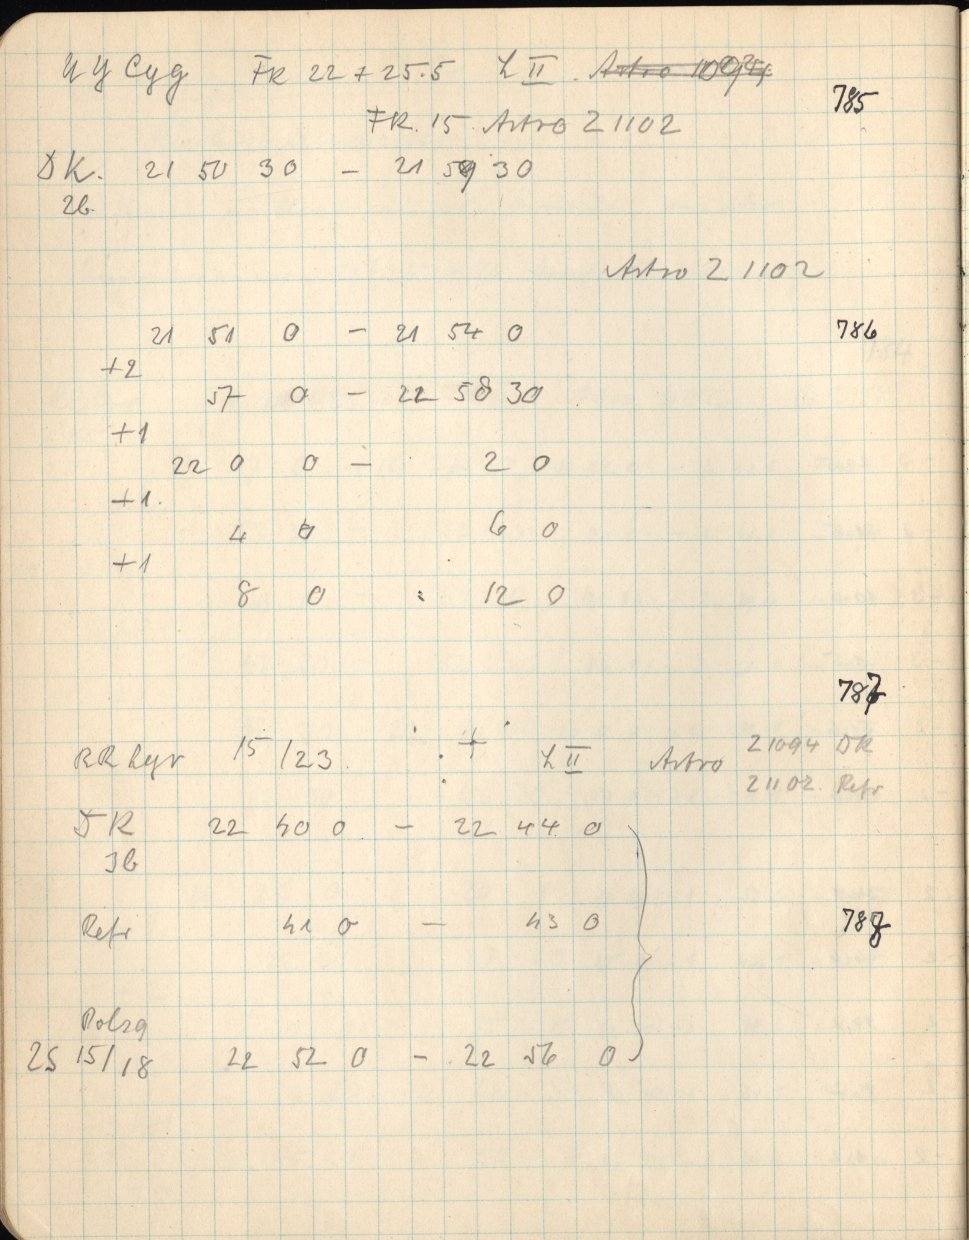 YY Cyg FR 22 + 25.5 L II
785
FR. 15. Astro Z 1102
DK. 21 50 30 – 21 59 30
2b.
Astro Z 1102
21 51 0 – 21 54 0 786
+2
57 0 – 22 58 30
+1
22 0 0 – 2 0
+1.
4 0 6 0
+1
8 0 : 12 0
787
RR Lyr 15/23 L II Astro Z 1094 DK
Z 1102 Refr
DK 22 40 0 – 22 44 0
3b
Refr 41 0 – 43 0 788
Polsq
25 15/18 22 52 0 – 22 56 0